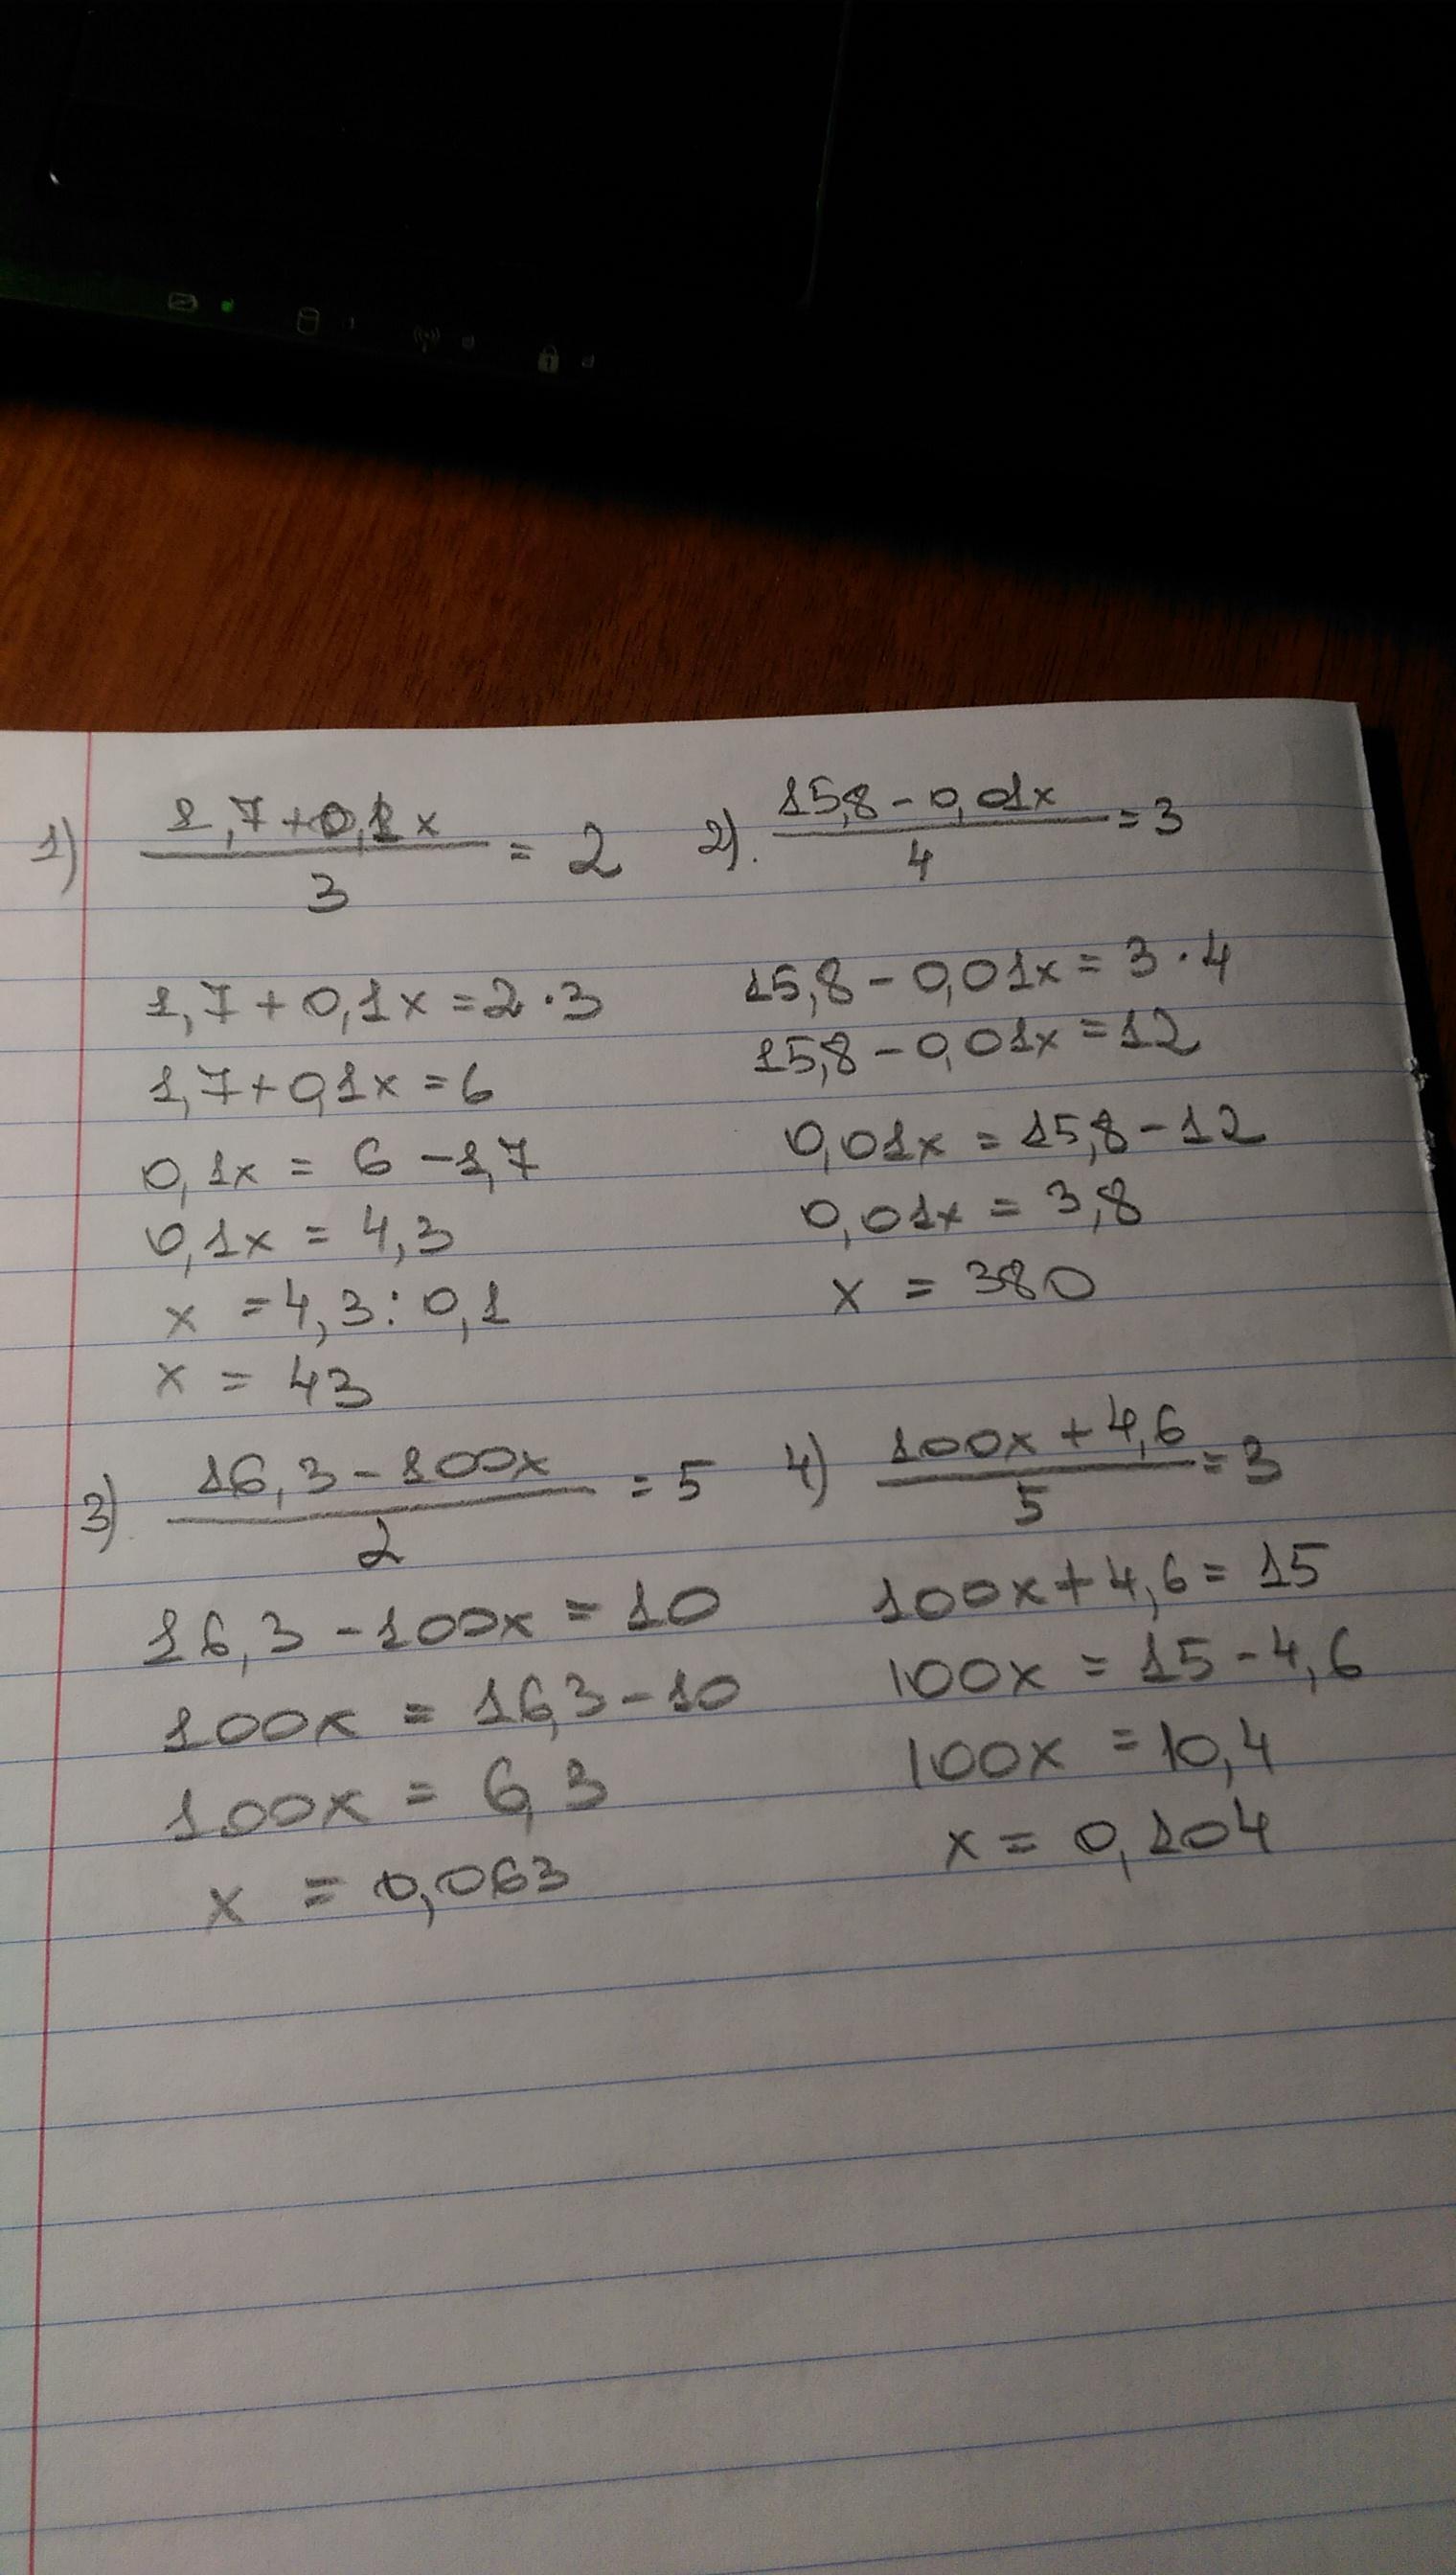 1) (1,7+0,1x)/3 = 2
1,7+0,1x=2·3
1,7+0,1x=6
0,1x = 6-1,7
0,1x = 4,3
x =4,3:0,1
x = 43
2). (15,8-0,01x)/4 =3
15,8-0,01x= 3·4
15,8-0,01x=12
0,01x = 15,8-12
0,01x = 3,8
x = 380
3) (16,3-100x)/2 = 5
16,3-100x = 10
100x = 16,3-10
100x = 6,3
x = 0,063
4) (100x+4,6)/5 =3
100x+4,6= 15
100x = 15-4,6
100x =10,4
x = 0,104